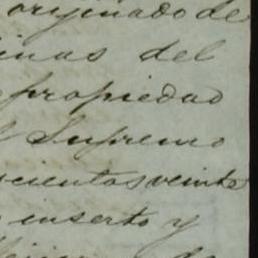 originado de
inas del
propiedad
l Supremo
scientos veinte
inserto y